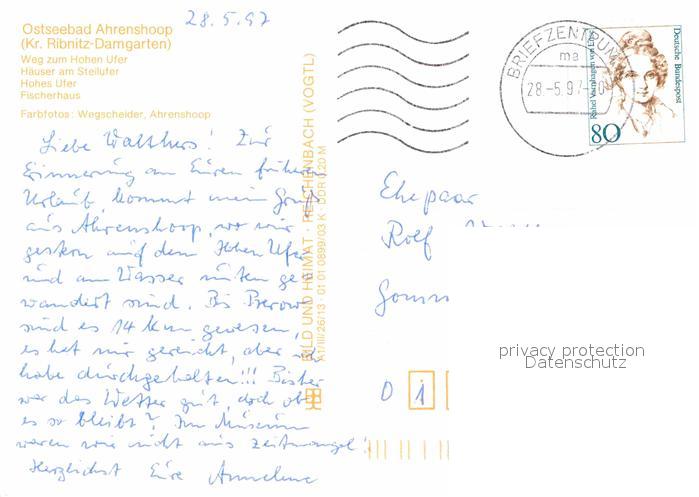 28.5.97
Ostseebad Ahrenshoop
(Kr. Ribnitz-Damgarten)
Weg zum Hohen Ufer
Häuser am Steilufer
Hohes Ufer
Fischerhaus
Farbfotos: Wegscheider, Ahrenshoop
Liebe Walthers! Zur
Erinnerung an Euren früheren
Urlaub kommt mein Gruß
aus Ahrenshoop, wo wir
gestern auf dem Hohen Ufer
und am Wasser unten ge-
wandert sind. Bis Prerow
sind es 14 km gewesen,
es hat mir gereicht, aber ich
habe durchgehalten!!! Bisher
war das Wetter gut, doch ob
es so bleibt? Im Museum
waren wir nicht aus Zeitmangel!
Herzlichst Eure Annelene
BILD UND HEIMAT · REICHENBACH (VOGTL)
A1/III/26/13 01 01 0899/03 K DDR 0,20 M
BRIEFZENTRUM
ma
28.-5.97
Deutsche Bundespost
Rahel Varnhagen von Ense
80
Ehepaar
Rolf
0 1
privacy protection
Datenschutz